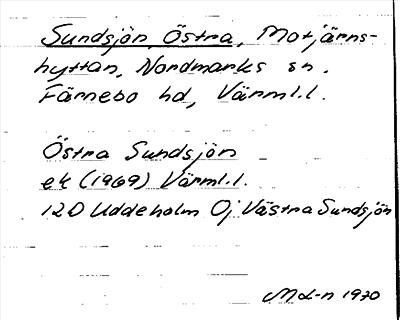 Sundsjön, Östra, Motjärns-
hyttan, Nordmarks sn.
Färnebo hd, Värml.l.
Östra Sundsjön
ek (1969) Värml.l.
12D Uddeholm Oj Västra Sundsjön
ML-n 1970